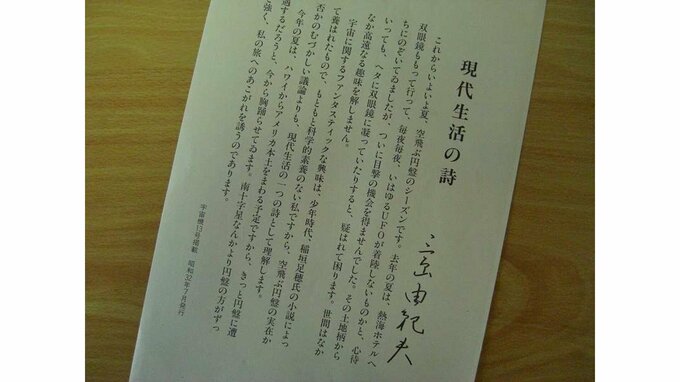 現代生活の詩
三島由紀夫
これからいよいよ夏、空飛ぶ円盤のシーズンです。去年の夏は、熱海ホテルへ
双眼鏡ももって行って、毎夜毎夜、いはゆるUFOが着陸しないものかと、心待
ちにのぞいてゐましたが、つひに目撃の機会を得ませんでした。その土地柄から
いっても、ヘタに双眼鏡に凝っていたりすると、疑はれて困ります。世間はなか
なか高遠なる趣味を解しません。
宇宙に関するファンタスティックな興味は、少年時代、稲垣足穂氏の小説によっ
て養はれたもので、もともと科学的素養のない私ですから、空飛ぶ円盤の実在か
否かのむづかしい議論よりも、現代生活の一つの詩として理解します。
今年の夏は、ハワイからアメリカ本土をまわる予定ですから、きっと円盤に遭
遇するだろうと、今から胸踊らせてゐます。南十字星なんかより円盤の方がずっ
と強く、私の旅へのあこがれを誘うのであります。
宇宙機13号掲載 昭和32年7月発行